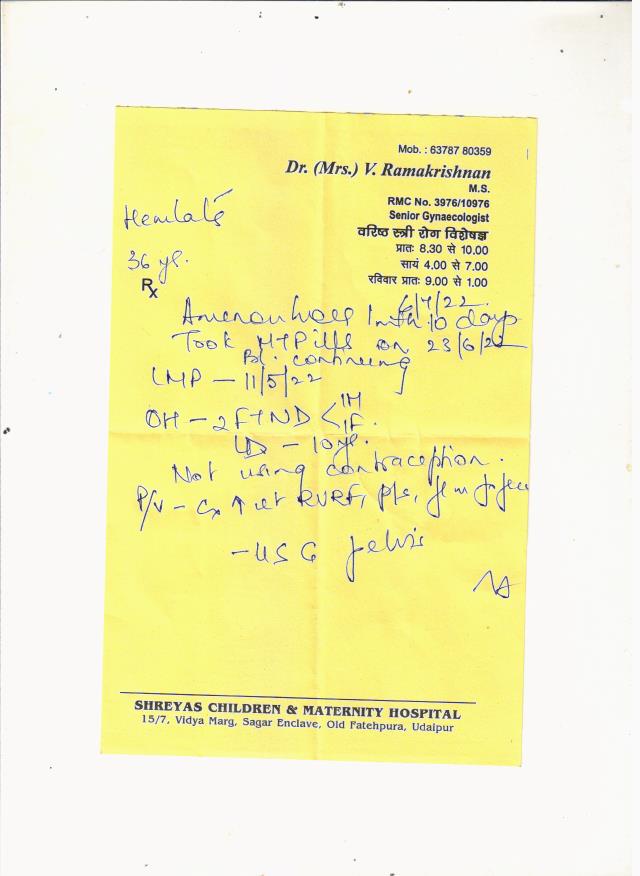 Mob. : 63787 80359
Dr. (Mrs.) V. Ramakrishnan
M.S.
RMC No. 3976/10976
Senior Gynaecologist
वरिष्ठ स्त्री रोग विशेषज्ञ
प्रातः 8.30 से 10.00
सायं 4.00 से 7.00
रविवार प्रातः 9.00 से 1.00
36 yr.
Rx
6/7/22.
10 days
Took MTPills on 23/6/22
Bl. continuing
LMP – 11/5/22
OH – 2 FTND < 1M
1F.
– 10 yr.
Not using contraception.
P/V – Cx ↑ ut RVRF,
– USG pelvis
SHREYAS CHILDREN & MATERNITY HOSPITAL
15/7, Vidya Marg, Sagar Enclave, Old Fatehpura, Udaipur